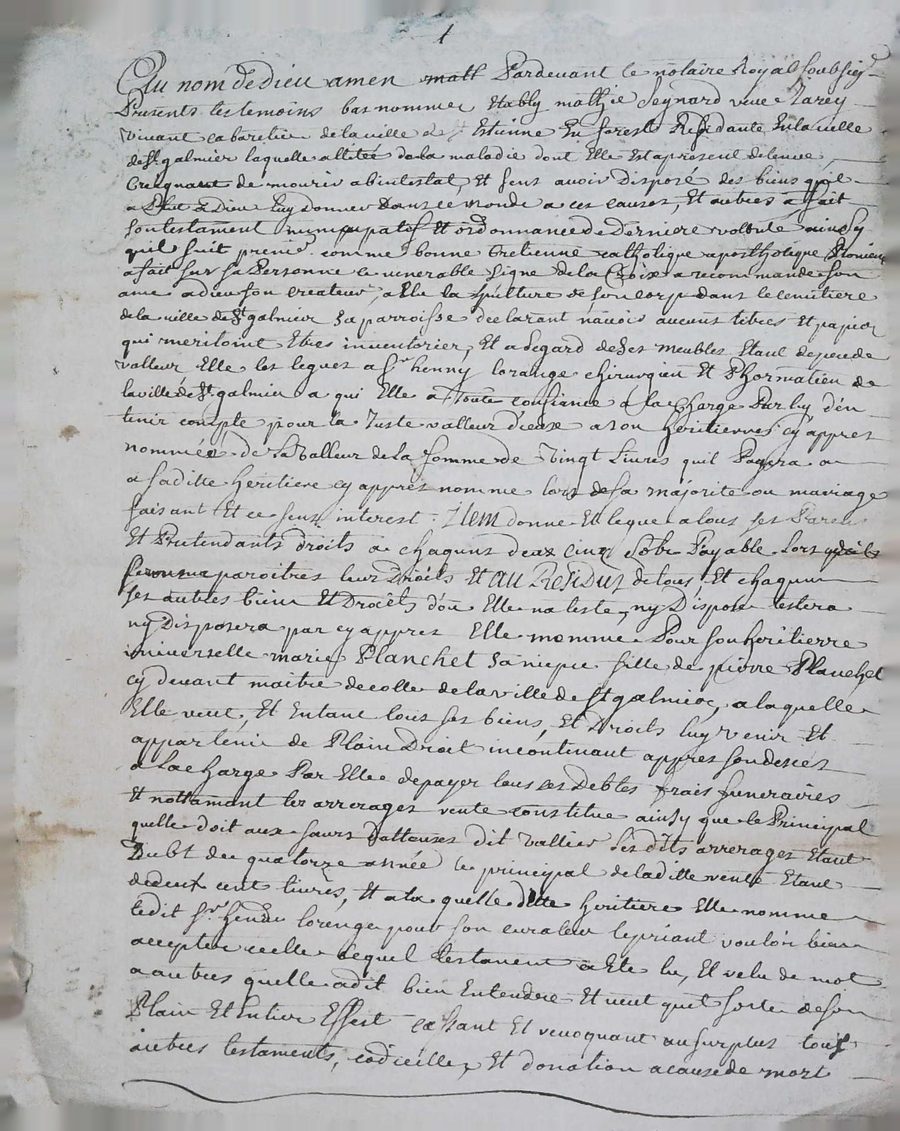 1
Au nom de dieu amen Pardevant le notaire Royal soubsig
Presents les temoins bas nommer Etably mathie Seynard veue Zarey
vivant cabaretier de la ville de St Estienne En forest Residante En la ville
de St galmier laquelle allitée de la maladie dont Elle Est apresent detenue
Creignant de mourir abintestat, Et sens avoir Disposé des biens qu'il
a Plut a Dieu luy donner dans ce monde a ces causes, Et autres a fait
son testament nuncupatif Et ordonnance de derniere volonté ainsy
quil suit premier comme bonne Cretienne catholique apostholique Romaine
a fait sur sa Personne le venerable signe de la Croix a recommande son
ame a dieu son createur, a Elu la sepulture de son corp dans le cemittiere
de la ville de St galmier sa parroisse declarant navoir aucuns titres Et papier
qui meritoint Etres inventorier, Et a legard de ses meubles Etant de peu de
valleur Elle les leguet a Sr henry lorange chirurgien Et Pharmatien de
la ville de St galmier a qui Elle a Toutte confiance a la Charge Par luy d'en
tenir compte pour la Juste valleur d'ieux a son heritiere cy appret
nommée de la valleur de la somme de Vingt Livres quil Payera a
a saditte heritiere cy appret nomme lors de sa majorité ou mariage
faisant Et ce sens interest. Item donne Et legue a tous ses Parens
Et Pretendants droits a chaquns deux cinq sols Payable lors quils
feront paroitres leur Droits Et Au Residus de tous Et chaqun
ses autres bien Et Droits d'ou Elle na teste, ny Dispose testera
ny Disposera par cy appret Elle nomme Pour son heritierre
universelle marie Planchet sa niepce fille de pierre Planchet
cy devant maitre decolle de la ville de St galmier, a laquelle
Elle veut, Et Entant tous ses biens, Et Droits luy venir Et
appartenir de Plain Droit incontinant appret son deces
a la charge Par Elle de payer tous ses Debtes frais funeraires
Et nottamant les arrerages vente constitue ainsy que le Principal
quelle doit aux sœurs dit vallier lesdits arrerages Etant
Dubt de quatorze année le principal de laditte vente Etant
de deux cent livres, Et a la quelle ditte heritiere Elle nomme
ledit Sr henry lorange pour son curateur le priant vouloir bien
accepter icelle lequel testament a Ete lu, Et relu de mot
a autres quelle a dit bien Entendre Et veut quil sorte de son
Plain Et Entier Effect cassant Et revoquant au surplus tous
autres testaments, codicilles, Et donation a cause de mort